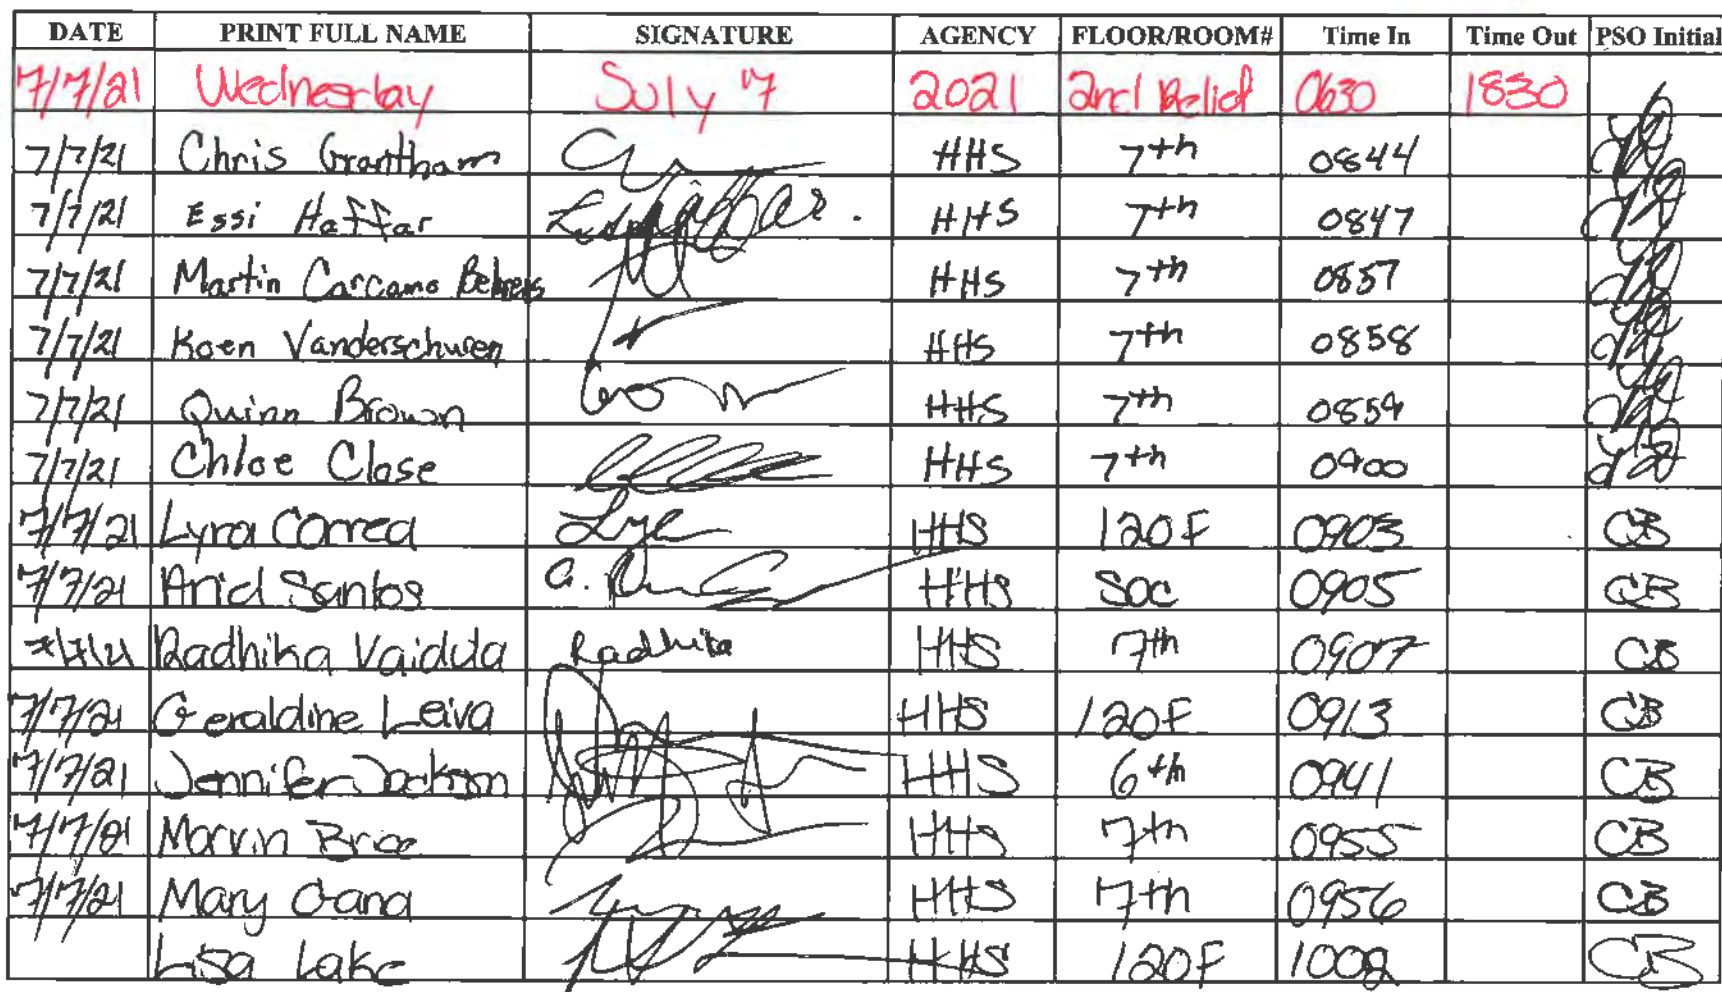 DATE PRINT FULL NAME SIGNATURE AGENCY FLOOR/ROOM# Time In Time Out PSO Initial
7/7/21 Wednesday July 7 2021 2nd Relief 0630 1830
7/7/21 Chris Grantham HHS 7th 0844
7/7/21 Essi Haffar HHS 7th 0847
7/7/21 Martin Carcamo Behrens HHS 7th 0857
7/7/21 Koen Vanderschuren HHS 7th 0858
7/7/21 Quinn Brown HHS 7th 0859
7/7/21 Chloe Close HHS 7th 0900
7/7/21 Lyra Correa HHS 120F 0903 CB
7/7/21 Santos HHS SOC 0905 CB
7/7/21 Radhika Radhika HHS 7th 0907 CB
7/7/21 Geraldine Leiva HHS 120F 0913 CB
7/7/21 Jennifer Jackson HHS 6th 0941 CB
7/7/21 Marvin HHS 7th 0955 CB
7/7/21 Mary HHS 7th 0956 CB
Lisa Lake HHS 120F 1002 CB